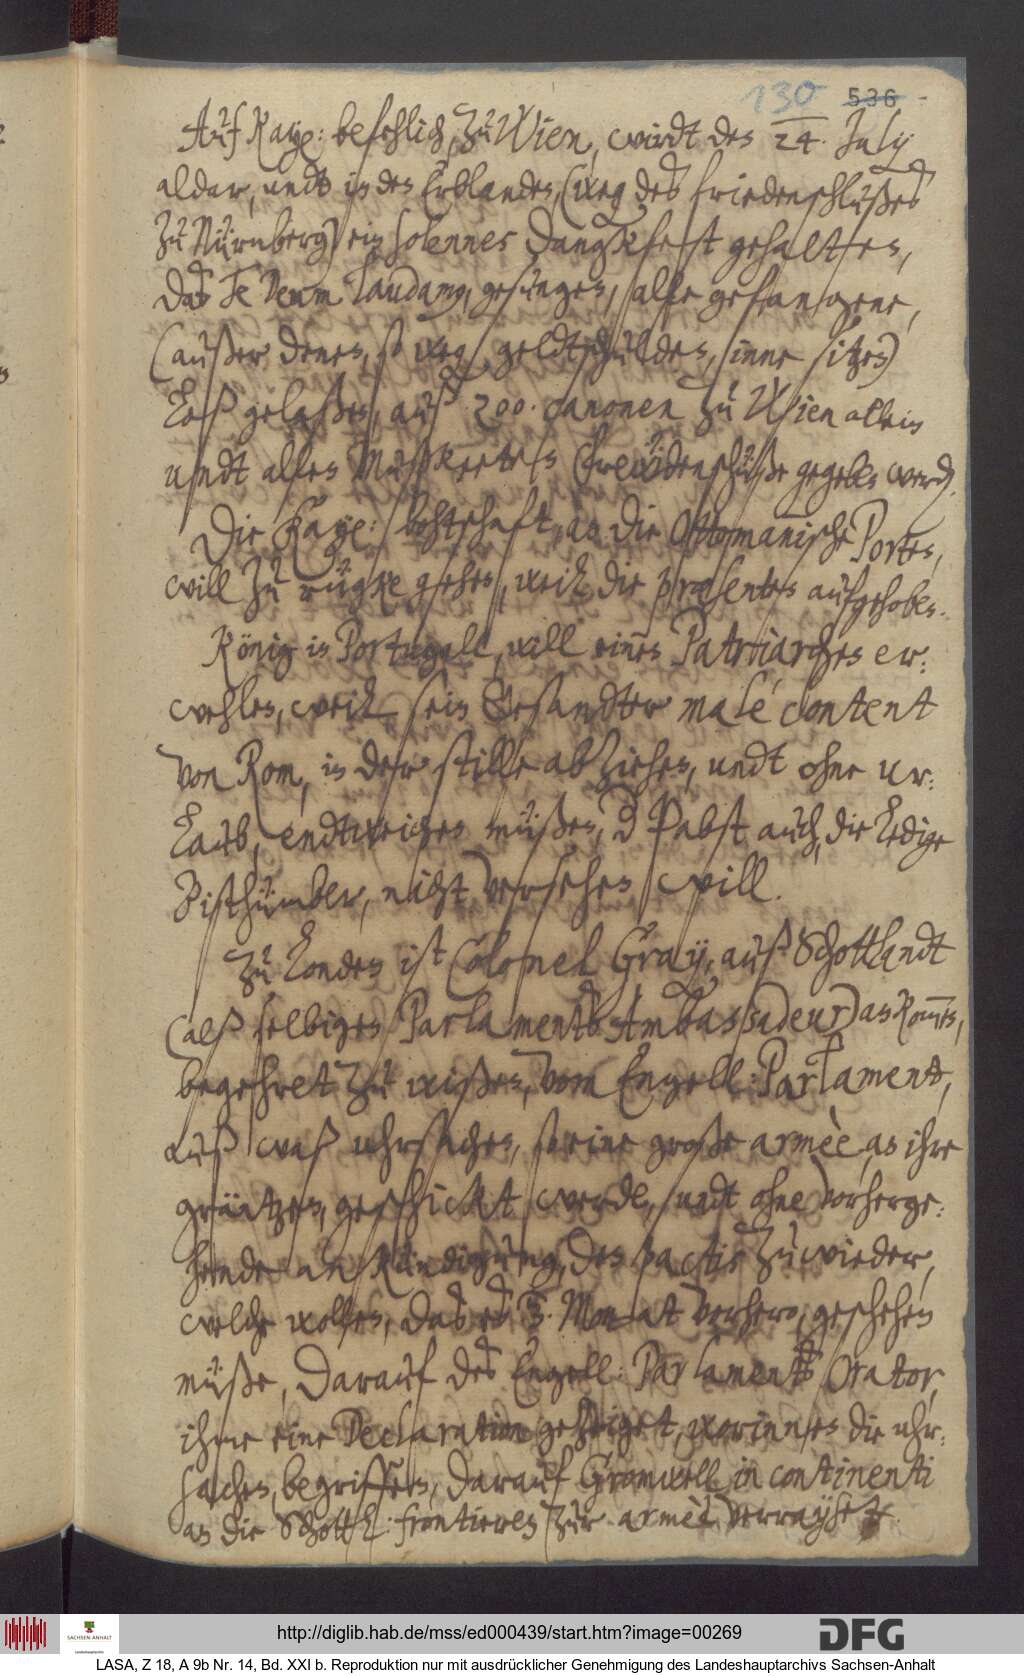 130 536
Auf Kay: befehlich, zu Wien, wirdt den 24. July
aldar, undt in den Erblanden, (weg des friedenschlußes
zu Nürnberg) ein solennes Dangkfest gehalten,
das Te Deum laudamus, gesungen, alle gefangene,
(außer denen, so weg geldtschulden, inne sitzen)
loß gelaßen, auß 200. canonen zu Wien allein
undt allen Mußketen frewdenschüße gegeben werden.
Die Kay: bottschaft, an die Ottomanische Porten,
will zu rügke gehen, weil die præsenten aufgehoben.
König in Portugall, will einen Patriarchen er-
wehlen, weil sein Gesandter male content
von Rom, in der stille abziehen, undt ohne ur-
laub, endtweichen müßen, der Pabst auch, die ledige
Bisthümber, nicht versehen will.
Zu Londen ist Colonel Gray, auß Schottlandt
(alß selbigen Parlaments Ambassadeur) ankommen,
begehret zu wißen, vom Engell: Parlament,
auß waß uhrsachen, so eine große armèe, an ihre
gräntzen, geschickt werde, undt ohne vorherge-
hende ankündigung, den pactis zuwieder,
welche wollen, das es 3. Monat vorhero, geschehen
müße, Darauf des Engell: Parlaments Orator,
ihme eine Declaration gezeiget, worinnen die uhr-
sachen, begriffen, darauf Gromwell in continenti
an die Schottl: frontieren zur armèe verrayset.
http://diglib.hab.de/mss/ed000439/start.htm?image=00269
SACHSEN-ANHALT
Landeshauptarchiv
DFG
LASA, Z 18, A 9b Nr. 14, Bd. XXI b. Reproduktion nur mit ausdrücklicher Genehmigung des Landeshauptarchivs Sachsen-Anhalt